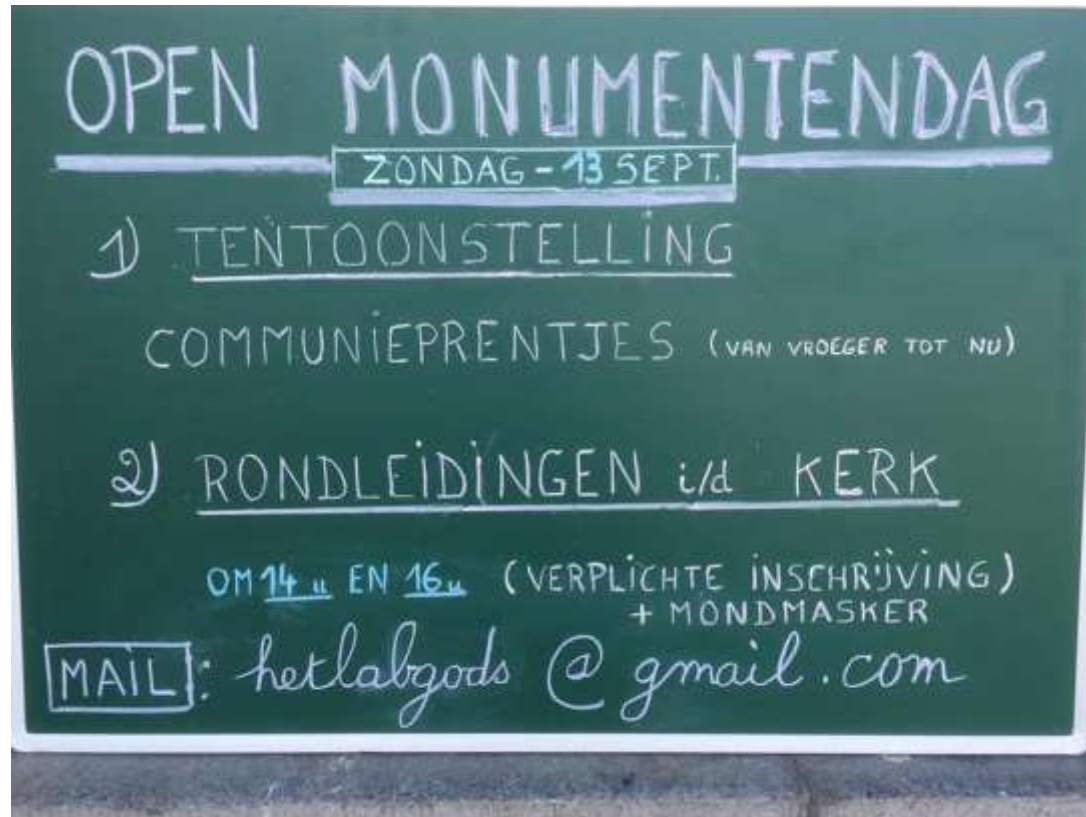 OPEN MONUMENTENDAG
ZONDAG - 13 SEPT.
1) TENTOONSTELLING
COMMUNIEPRENTJES (VAN VROEGER TOT NU)
2) RONDLEIDINGEN i/d KERK
OM 14 u EN 16 u (VERPLICHTE INSCHRIJVING)
+ MONDMASKER
MAIL: hetlabgods @ gmail.com